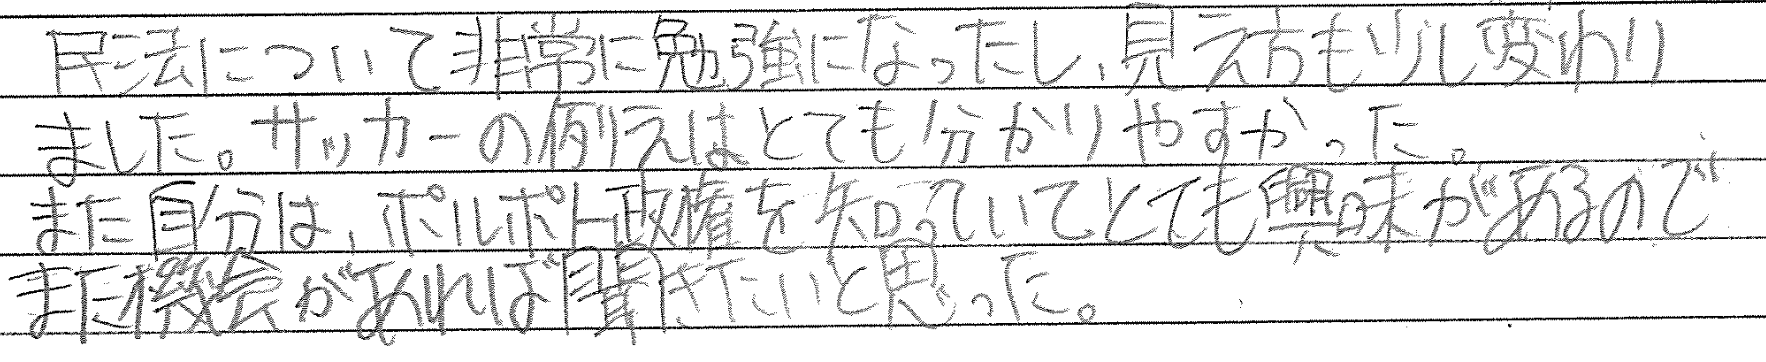 民法について非常に勉強になったし、見え方も少し変わり
ました。サッカーの例えはとても分かりやすかった。
また自分は、ポルポト政権を知っていてとても興味があるので
また機会があれば聞きたいと思った。